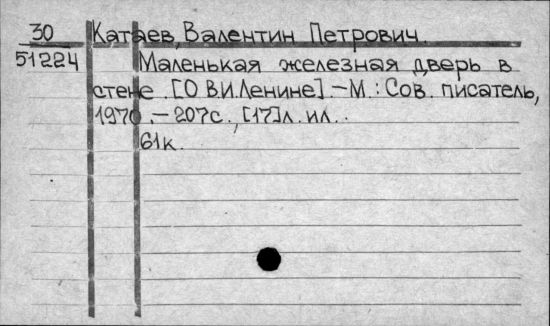 30 Катаев, Валентин Петрович.
51224 Маленькая железная дверь в
стене. [О В.И.Ленине]. –М.: Сов. писатель,
1970. – 207с., [17]л. ил..
61к.